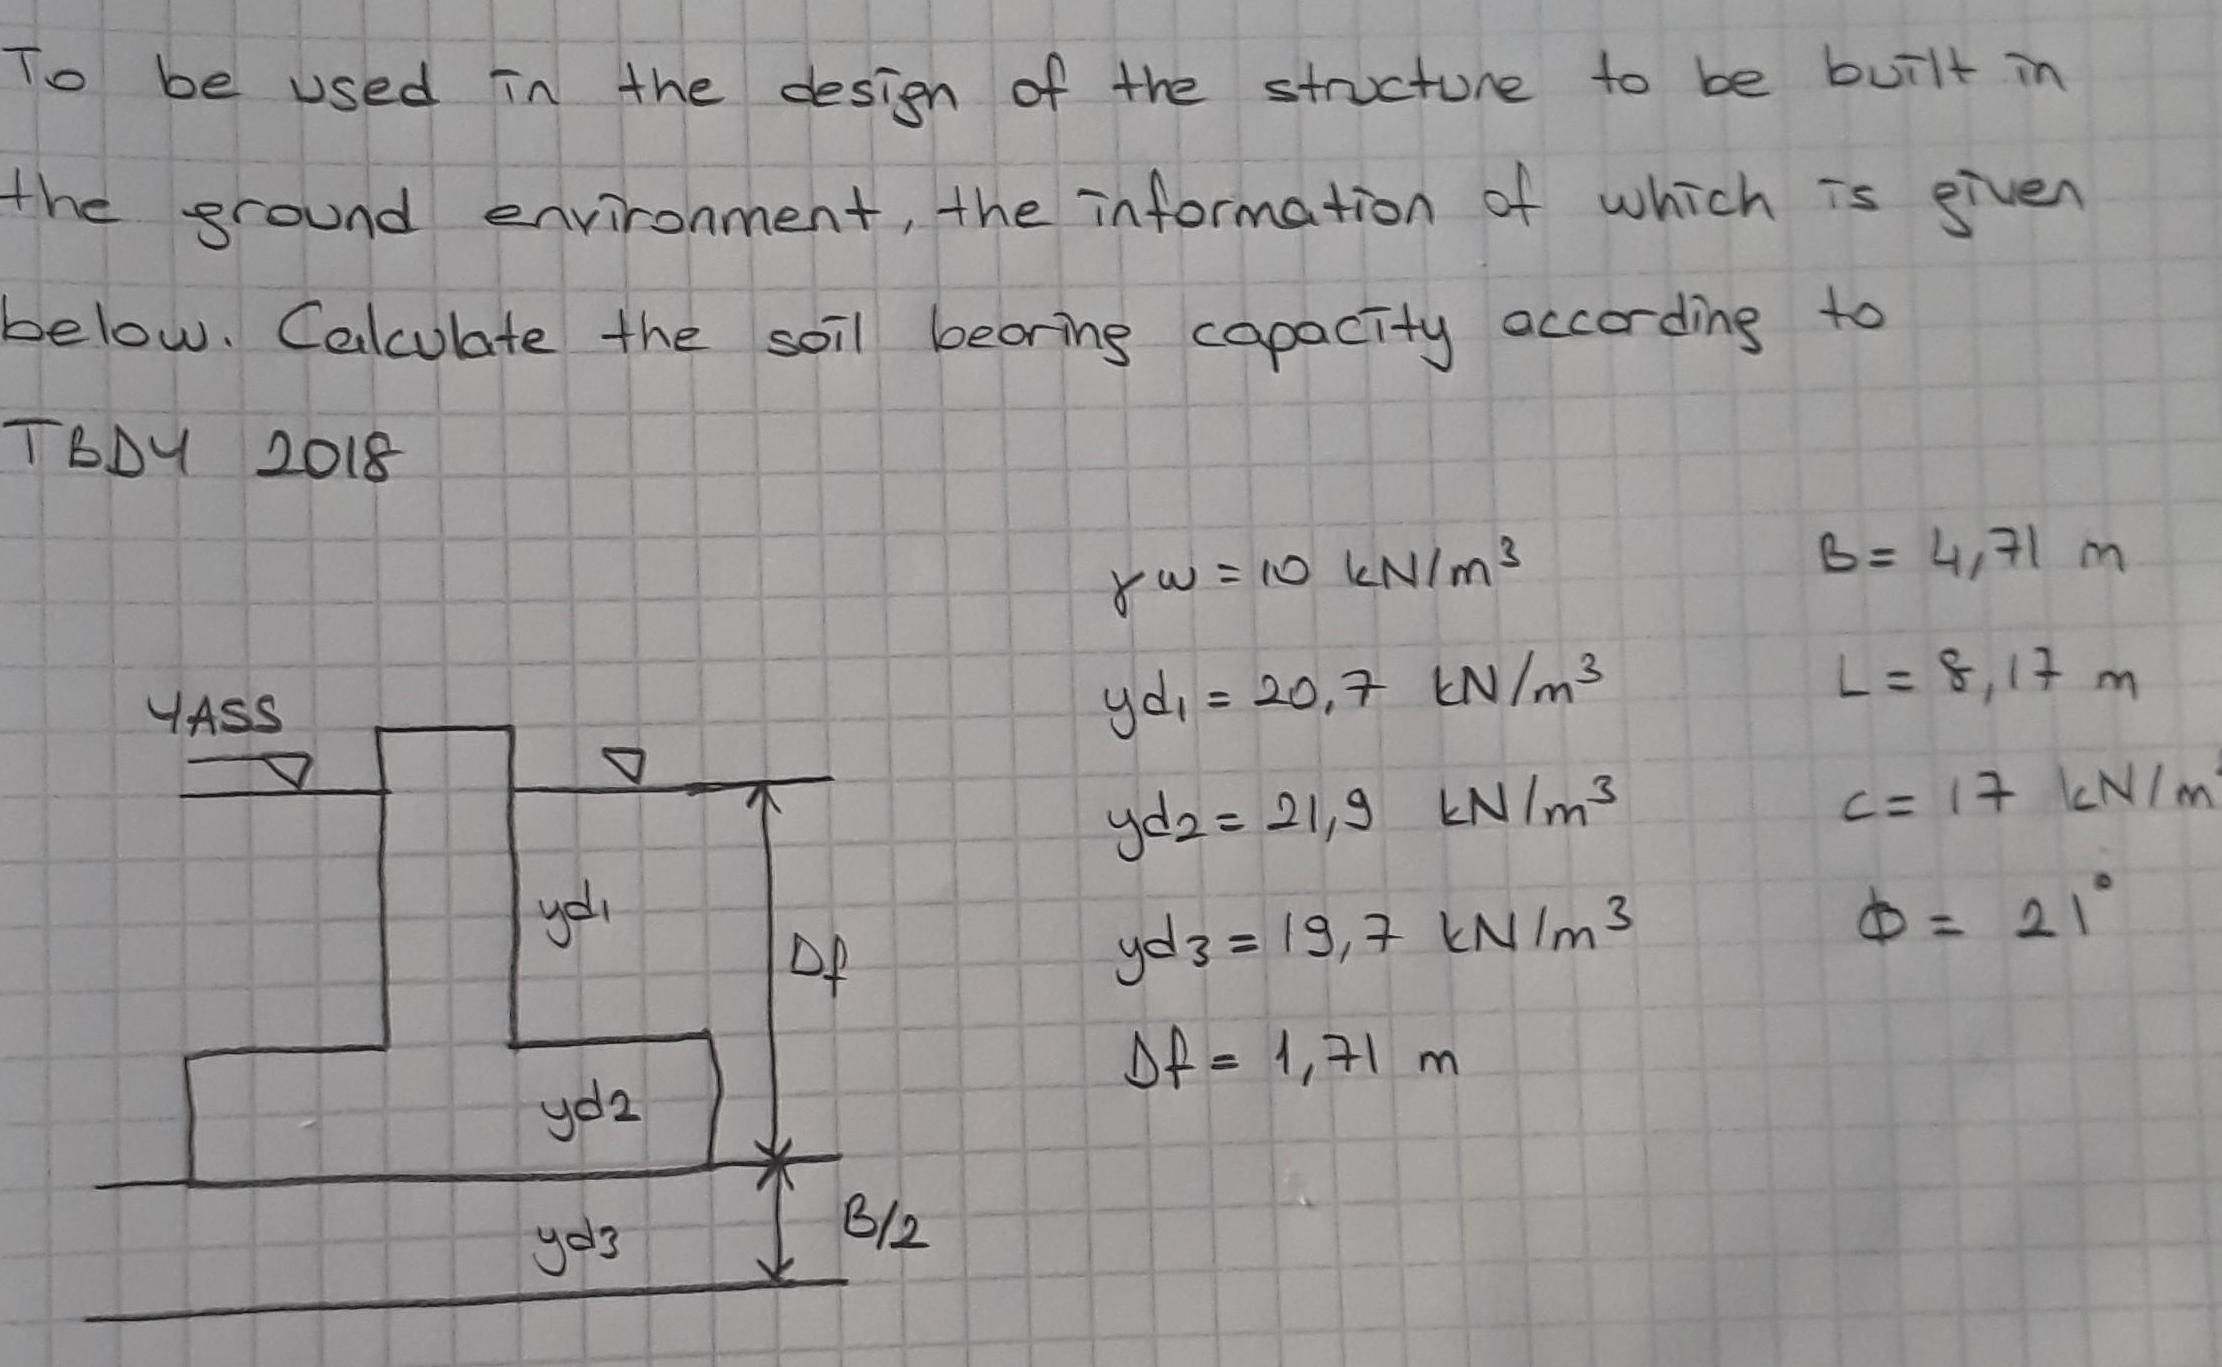 To be used in the design of the structure to be built in
the ground environment, the information of which is given
below. Calculate the soil bearing capacity according to
TBDY 2018
γw = 10 kN/m³
B = 4,71 m
γd1 = 20,7 kN/m³
L = 8,17 m
YASS
γd2 = 21,9 kN/m³
c = 17 kN/m²
γd1
Df
γd3 = 19,7 kN/m³
Φ = 21°
Df = 1,71 m
γd2
γd3
B/2